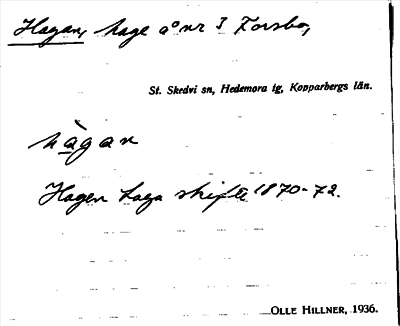 Hagan, hage å nr 3 Forsbo,
St. Skedvi sn, Hedemora tg, Kopparbergs län.
hàgan
Hagen laga skifte 1870-72.
OLLE HILLNER, 1936.